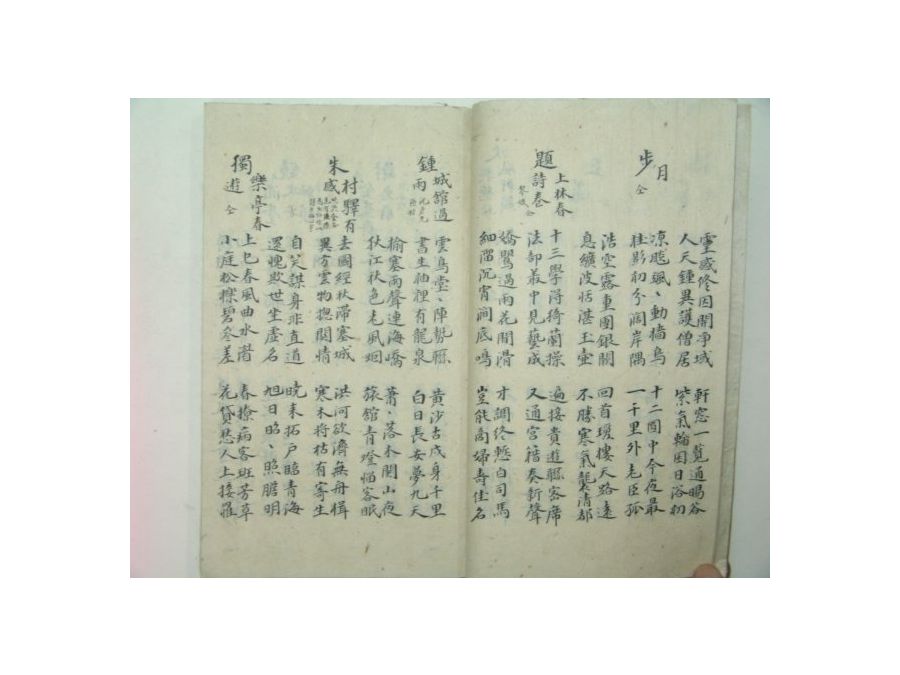 靈感修因開淨域 軒窓一覽通暘谷
人天鍾異護僧居 紫氣輪囷日浴初
步月 仝
凉飔颯丶動檣烏 十二回中今夜最
桂影初分濶岸隅 一千里外老臣孤
浩空露重團銀闕 回首瓊樓天路遠
息纊波恬湛玉壺 不勝寒氣襲清都
題上林春詩卷 琴妓 仝
十三學得猗蘭操 遍接貴遊聮密席
法部最中見藝成 又通宮籍奏新聲
嬌鸎過雨花間滑 才調終慙白司馬
細溜沉宵澗底鳴 豈能商婦壽佳名
鍾城館遇雨
雲鳥堂丶陣勢聮 黃沙古戍身千里
書生袖裡有龍泉 白日長安夢九天
榆塞雨聲連海嶠 蕭丶落木關山夜
狄江秋色老風烟 旅舘青燈惱客眠
朱村驛有感
去國經秋滯塞城 洪河欲濟無舟楫
異方雲物摠關情 寒木將枯有寄生
自笑謀身非直道 曉來拓戶臨青海
還媿欺世坐虛名 旭日昭丶照膽明
獨樂亭春遊 仝
上巳春風曲水 春撩病客班芳草
小庭松櫟碧參差 花貸愁人上接䍦